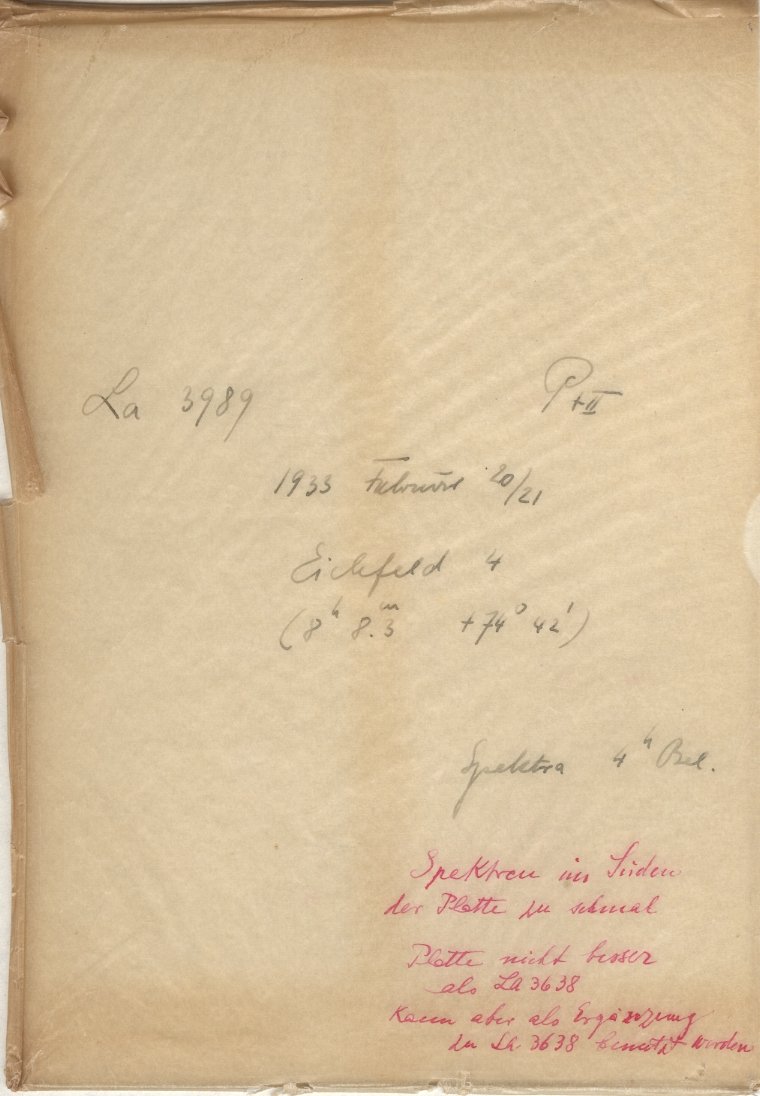 La 3989 P+II
1933 Februar 20/21
Eichfeld 4
(8ʰ 8.ᵐ3 +74° 42')
Spektra 4ʰ Bel.
Spektren im Süden
der Platte zu schmal
Platte nicht besser
als La 3638
Kann aber als Ergänzung
zu La 3638 benutzt werden